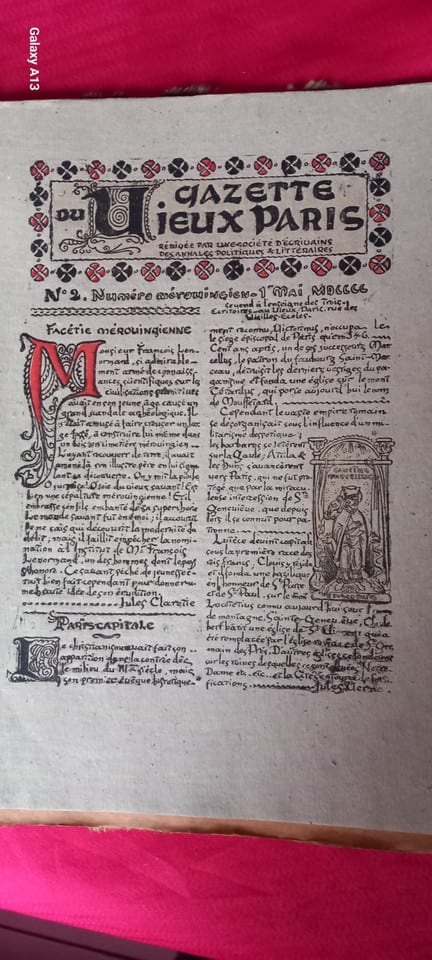 Galaxy A13
GAZETTE
DU VIEUX PARIS
RÉDIGÉE PAR UNE SOCIÉTÉ D'ÉCRIVAINS
DES ANNALES POLITIQUES & LITTÉRAIRES
No 2. Numéro mérovingien - 1 Mai MDCCCC
se vend à l'enseigne des Trois
Ecritoires au Vieux Paris, rue des
Vieilles Ecoles.
FACÉTIE MÉROVINGIENNE
Monsieur François Len-
ormand, si admirable-
ment armé de connaiss-
ances scientifiques sur les
civilisations primitives
avait en son jeune âge causé un
grand scandale archéologique. Il
s'était amusé à faire creuser un lar
ge fossé, à construire lui même dans
un bois un cimetière mérovingien.
L'ayant recouvert de terre, il avait
amené là son illustre père en lui sign
lant sa découverte. On y mit la pioche
O surprise! Oui le vieux savant! C'est
bien une sépulture mérovingienne! Et il
embrasse son fils, enchanté de sa superbe
Le monde savant fut en émoi; il accourut
Je ne sais qui découvrit la modernité du
délit; mais il faillit empêcher la nomi
nation à l'Institut de Mr François
Lenormand, un des hommes dont le pays
s'honora. Ce savant péché de jeunesse é-
tait bien fait cependant pour donner u
ne haute idée de son érudition.
Jules Claretie
PARIS CAPITALE
Le christianisme avait fait son
apparition dans la contrée dès
le milieu du IIIme siècle, mais
son premier évêque historique-
ment reconnu, Victorinus, n'occupa le
le siège épiscopal de Paris qu'en 346.
Cent ans après, un de ses successeurs Mar
cellus, le patron du faubourg Saint-Mar-
ceau, détruisit les derniers vestiges du pa-
ganisme et fonda une église sur le mont
Cétardus, qui porte aujourd'hui le nom
de Mouffetard.
Cependant le vaste empire romain
se désorganisait sous l'influence d'un mi-
litarisme despotique;
les barbares se jetèrent
sur la Gaule; Attila &
les Huns s'avancèrent
vers Paris, qui ne fut pro
tégé que par la miracu
leuse intercession de Ste
Geneviève, que depuis
lors il se donnit pour pa
tronne.
Lutèce devint capitale
sous la première race des
rois francs, Clovis y résida
et fonda une basilique
en l'honneur de St Pierre
et de St Paul, sur le mont
Locutitius connu aujourd'hui sous
de montagne Sainte-Geneviève, Childe
bert bâtit une église de St qui a
été remplacée par l'église de St Ger
main des Prés. D'autres églises
sur les ruines desquelles Notre
Dame etc. etc. et la Cité de for
tifications. Jules Verne.